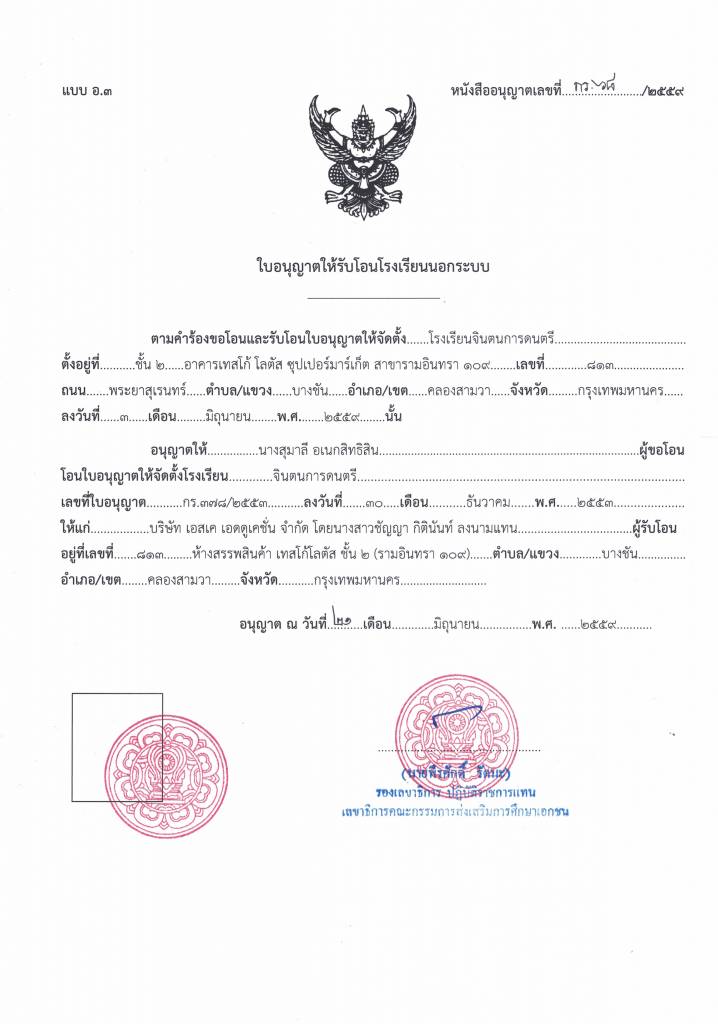 แบบ อ.๓
หนังสืออนุญาตเลขที่......................../๒๕๕๙
ใบอนุญาตให้รับโอนโรงเรียนนอกระบบ
ตามคำร้องขอโอนและรับโอนใบอนุญาตให้จัดตั้ง.......โรงเรียนจินตนการดนตรี.......................................
ตั้งอยู่ที่...........ชั้น ๒......อาคารเทสโก้ โลตัส ซุปเปอร์มาร์เก็ต สาขารามอินทรา ๑๐๙........เลขที่.............๘๑๓......................
ถนน.......พระยาสุเรนทร์......ตำบล/แขวง......บางชัน......อำเภอ/เขต......คลองสามวา......จังหวัด.........กรุงเทพมหานคร......
ลงวันที่......๓......เดือน.........มิถุนายน........พ.ศ.......๒๕๕๙........นั้น
อนุญาตให้................นางสุมาลี อเนกสิทธิสิน.................................................................................ผู้ขอโอน
โอนใบอนุญาตให้จัดตั้งโรงเรียน..............จินตนการดนตรี.........................................................................................
เลขที่ใบอนุญาต...........กร.๓๗๘/๒๕๕๓...........ลงวันที่.......๓๐.....เดือน............ธันวาคม.......พ.ศ.....๒๕๕๓......................
ให้แก่...................บริษัท เอสเค เอดดูเคชั่น จำกัด โดยนางสาวชัญญา กิตินันท์ ลงนามแทน....................................ผู้รับโอน
อยู่ที่เลขที่.......๘๑๓.........ห้างสรรพสินค้า เทสโก้โลตัส ชั้น ๒ (รามอินทรา ๑๐๙).......ตำบล/แขวง.............บางชัน...............
อำเภอ/เขต........คลองสามวา.........จังหวัด...........กรุงเทพมหานคร..........................
อนุญาต ณ วันที่..๒๑..เดือน.............มิถุนายน................พ.ศ. ......๒๕๕๙...........
(นายพีรศักดิ์ รัตนะ)
รองเลขาธิการ ปฏิบัติราชการแทน
เลขาธิการคณะกรรมการส่งเสริมการศึกษาเอกชน